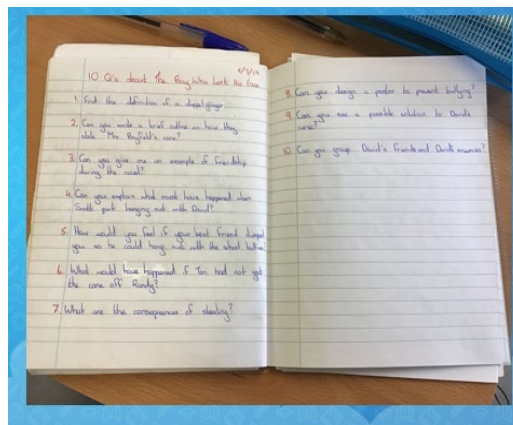 4/3/19
10 Q's about The Boy Who Lost His Face
1. Find the definition of a doppelgänger.
2. Can you write a brief outline on how they
stole Mrs. Bayfield's cane?
3. Can you give me an example of friendship
during the novel?
4. Can you explain what must have happened when
Scott quit hanging out with David?
5. How would you feel if your best friend dumped
you so he could hang out with the school bullies?
6. What would have happened if Tori had not got
the cane off Randy?
7. What are the consequences of stealing?
8. Can you design a poster to prevent bullying?
9. Can you see a possible solution to David's
curse?
10. Can you group David's friends and David's enemies?